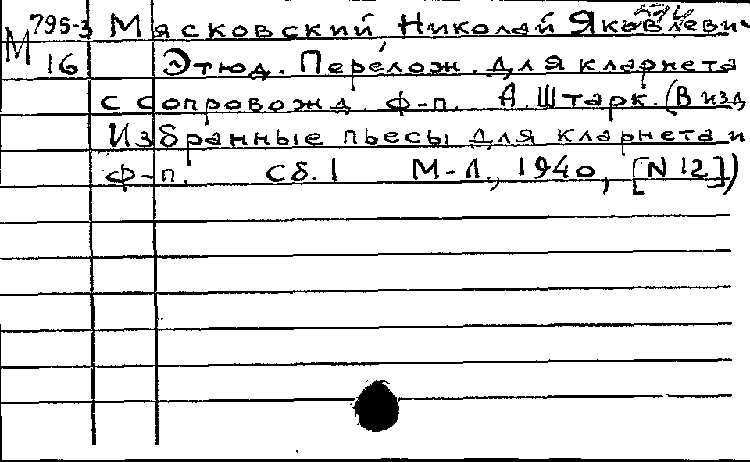 М 795-3 Мясковский, Николай Яковлевич
16 Этюд. Перелож. для кларнета
с сопровожд. ф-п. А. Штарк. (В изд
Избранные пьесы для кларнета и
ф-п. Сб. 1 М-Л., 1940, [N 12])